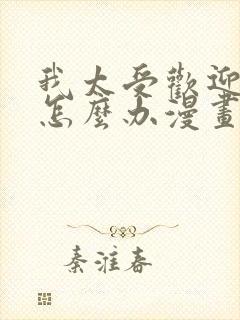 我太受歡迎
怎麼办漫畫
秦淮春